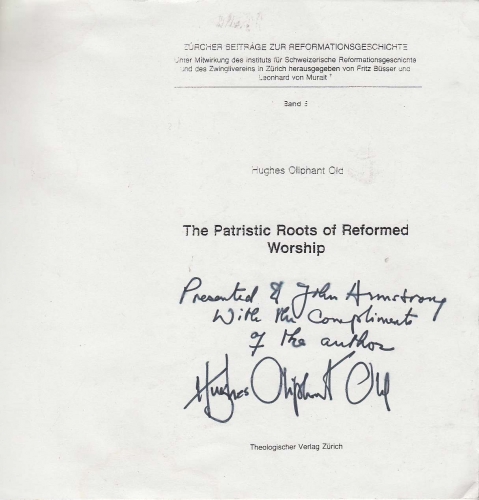 ZÜRCHER BEITRÄGE ZUR REFORMATIONSGESCHICHTE
Unter Mitwirkung des Instituts für Schweizerische Reformationsgeschichte
und des Zwinglivereins in Zürich herausgegeben von Fritz Büsser und
Leonhard von Muralt †
Band 5
Hughes Oliphant Old
The Patristic Roots of Reformed
Worship
Presented to John Armstrong
With the Compliments
of the author
Hughes Oliphant Old
Theologischer Verlag Zürich